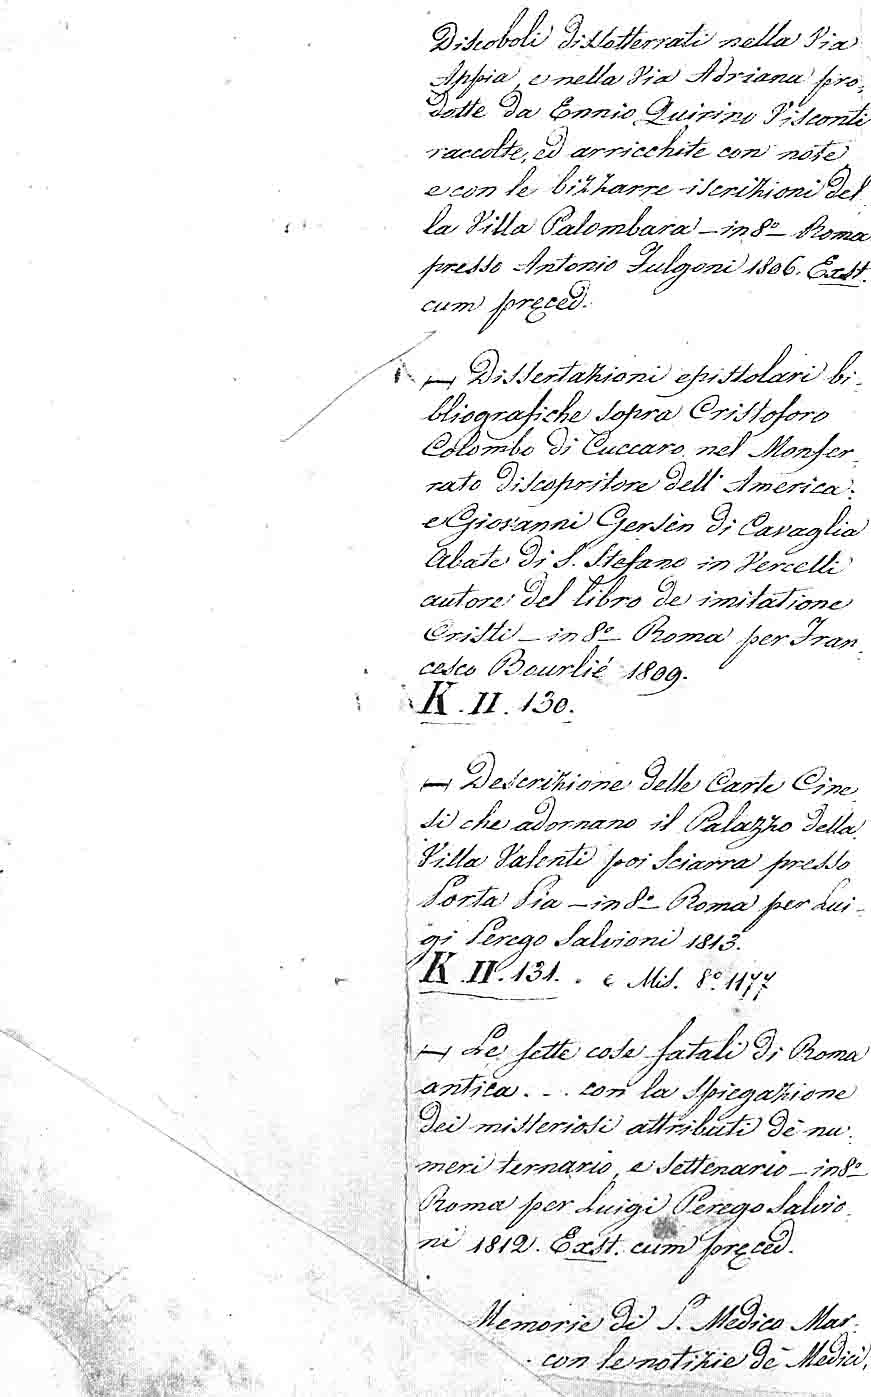 Discoboli dissotterrati nella Via
Appia, e nella Via Adriana pro-
dotte da Ennio Quirino Visconti
raccolte, ed arricchite con note
e con le bizzarre iscrizioni del
la Villa Palombara – in 8º – Roma
presso Antonio Fulgoni 1806. Exst.
cum pręced.
— Dissertazioni epistolari bi-
bliografiche sopra Cristoforo
Colombo di Cuccaro nel Monfer-
rato discopritore dell' America:
e Giovanni Gersèn di Cavaglia
Abate di S. Stefano in Vercelli
autore del libro de imitatione
Cristi – in 8º – Roma per Fran-
cesco Bourlié 1809.
K. II. 130.
— Descrizione delle Carte Cine
si che adornano il Palazzo della
Villa Valenti poi Sciarra presso
Porta Pia – in 8º – Roma per Lui-
gi Perego Salvioni 1813.
K. II. 131. . e Mis. 8º. 1177
— Le sette cose fatali di Roma
antica . . . con la spiegazione
dei misteriosi attributi dè nu-
meri ternario, e settenario – in 8º –
Roma per Luigi Perego Salvio-
ni 1812. Exst. cum pręced.
Memorie di S. Medico Mar-
con le notizie dè Medici,